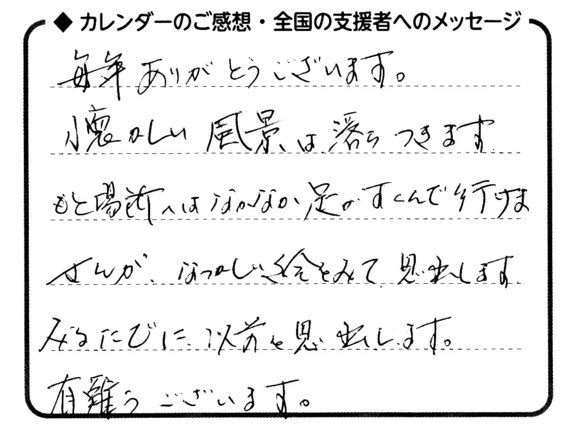 ◆ カレンダーのご感想・全国の支援者へのメッセージ
毎年ありがとうございます。
懐かしい風景は落ちつきます
もと場所へはなかなか足がすくんで行けま
せんが、なつかしい絵をみて思出します
みるたびに以前を思い出します。
有難うございます。